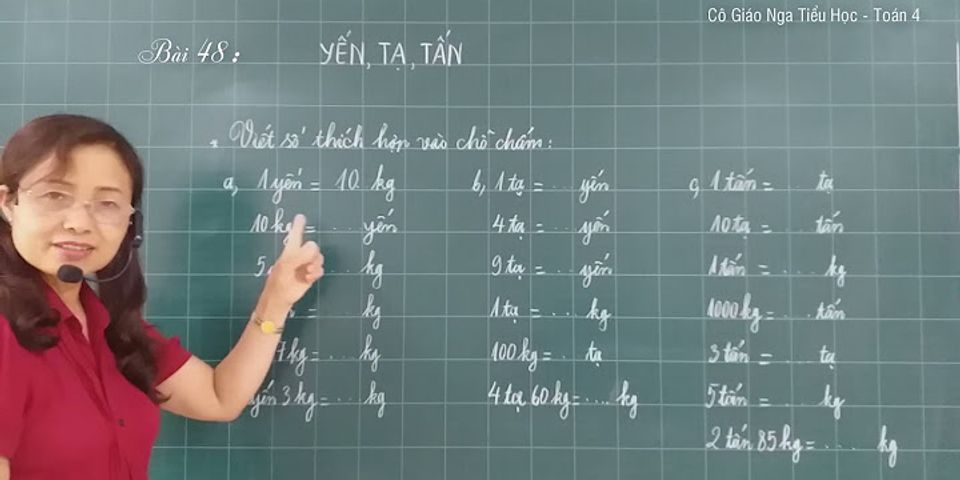 Cô Giáo Nga Tiểu Học - Toán 4
Bài 48: YẾN, TẠ, TẤN
* Viết số thích hợp vào chỗ chấm:
a, 1 yến = 10 kg
10 kg = ... yến
5 ... kg
= ... kg
7 kg = ... kg
yến 3 kg = ... kg
b, 1 tạ = ... yến
4 tạ = ... yến
9 tạ = ... yến
1 tạ = ... kg
100 kg = ... tạ
4 tạ 60 kg = .... kg
c, 1 tấn = ... tạ
10 tạ = ... tấn
1 tấn = ... kg
1000 kg = ... tấn
3 tấn = ... tạ
5 tấn = ... kg
2 tấn 85 kg = .... kg